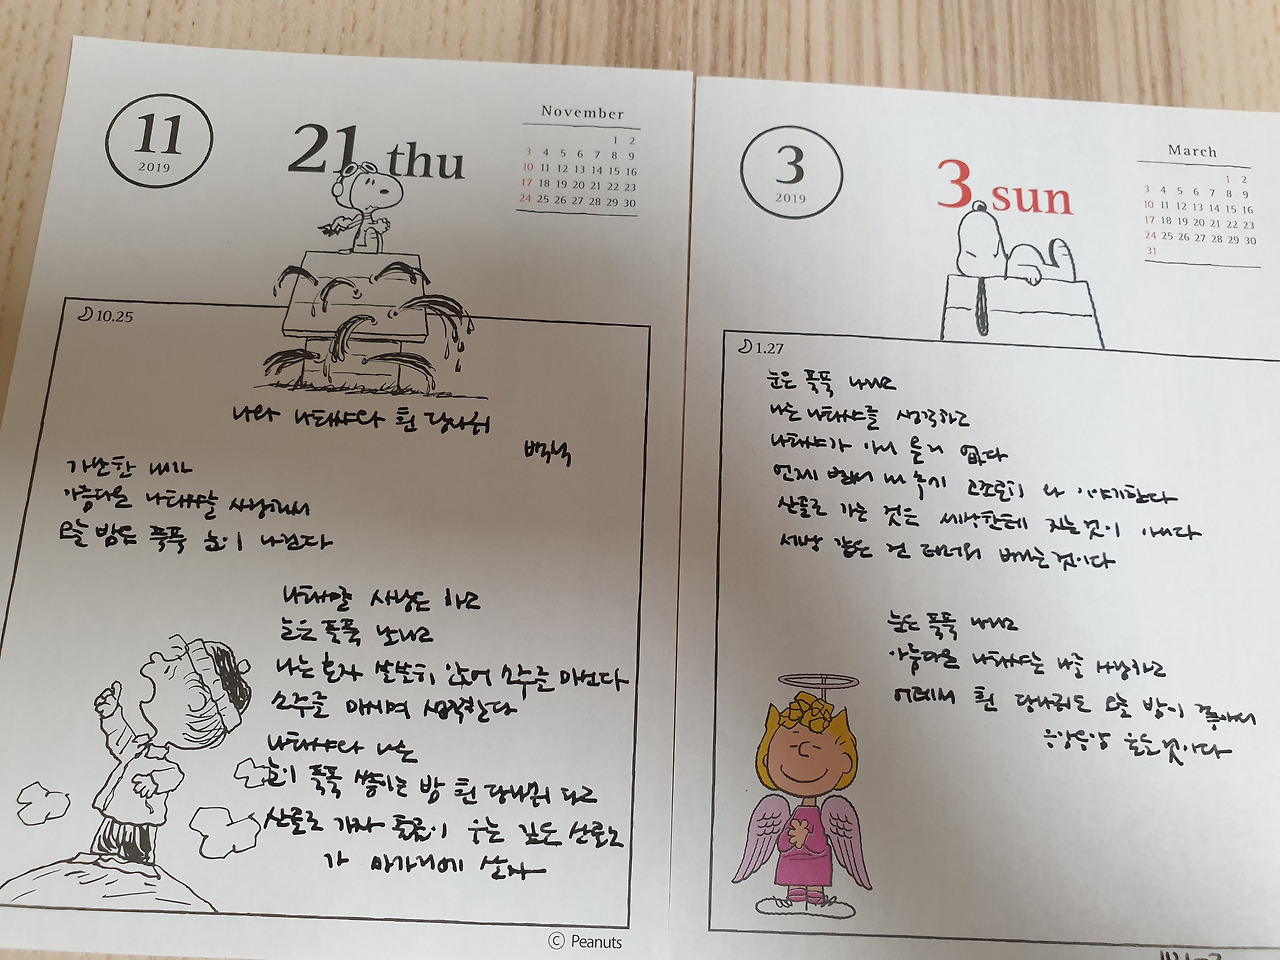 11
2019
21 thu
November
1 2
3 4 5 6 7 8 9
10 11 12 13 14 15 16
17 18 19 20 21 22 23
24 25 26 27 28 29 30
10.25
나와 나타샤와 흰 당나귀
백석
가난한 내가
아름다운 나타샤를 사랑해서
오늘 밤은 푹푹 눈이 나린다
나타샤를 사랑은 하고
눈은 푹푹 날리고
나는 혼자 쓸쓸히 앉어 소주를 마신다
소주를 마시며 생각한다
나타샤와 나는
눈이 푹푹 쌓이는 밤 흰 당나귀 타고
산골로 가자 출출이 우는 깊은 산골로
가 마가리에 살자
© Peanuts
3
2019
3 sun
March
1 2
3 4 5 6 7 8 9
10 11 12 13 14 15 16
17 18 19 20 21 22 23
24 25 26 27 28 29 30
31
1.27
눈은 푹푹 나리고
나는 나타샤를 생각하고
나타샤가 아니 올 리 없다
언제 벌써 내 속에 고조곤히 와 이야기한다
산골로 가는 것은 세상한테 지는 것이 아니다
세상 같은 건 더러워 버리는 것이다
눈은 푹푹 나리고
아름다운 나타샤는 나를 사랑하고
어데서 흰 당나귀도 오늘 밤이 좋아서
응앙응앙 울을 것이다